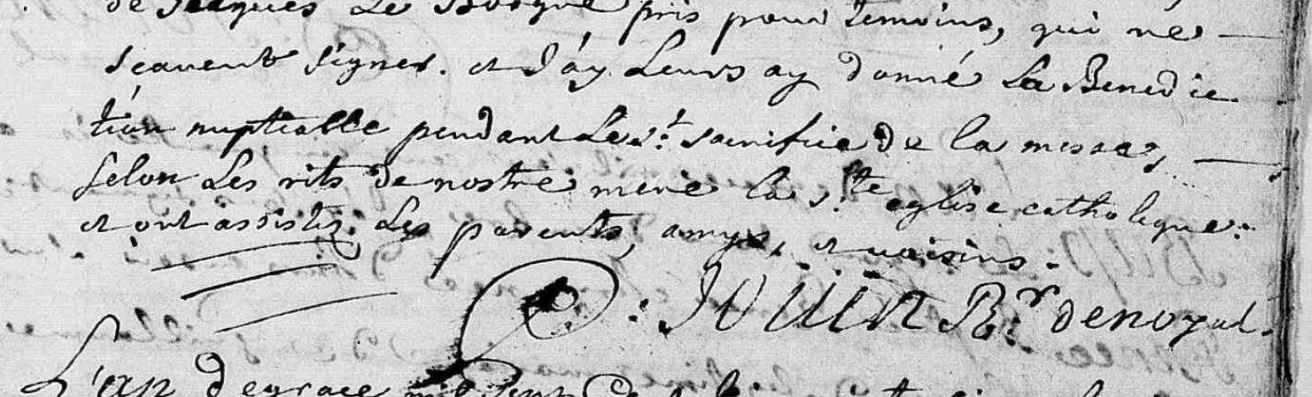 de Jacques Le Bosque pris pour temoins, qui ne
scavent signer. et J'ay Leurs ay donné La Benedic
tion nuptialle pendant Le st. sacrifice de la messe,
selon Les rits de nostre mere la ste. eglise catholique.
et ont assistez. Les parents, amys, et voisins.
Jouin Rr. de noyal.
L'an de grace mil sept